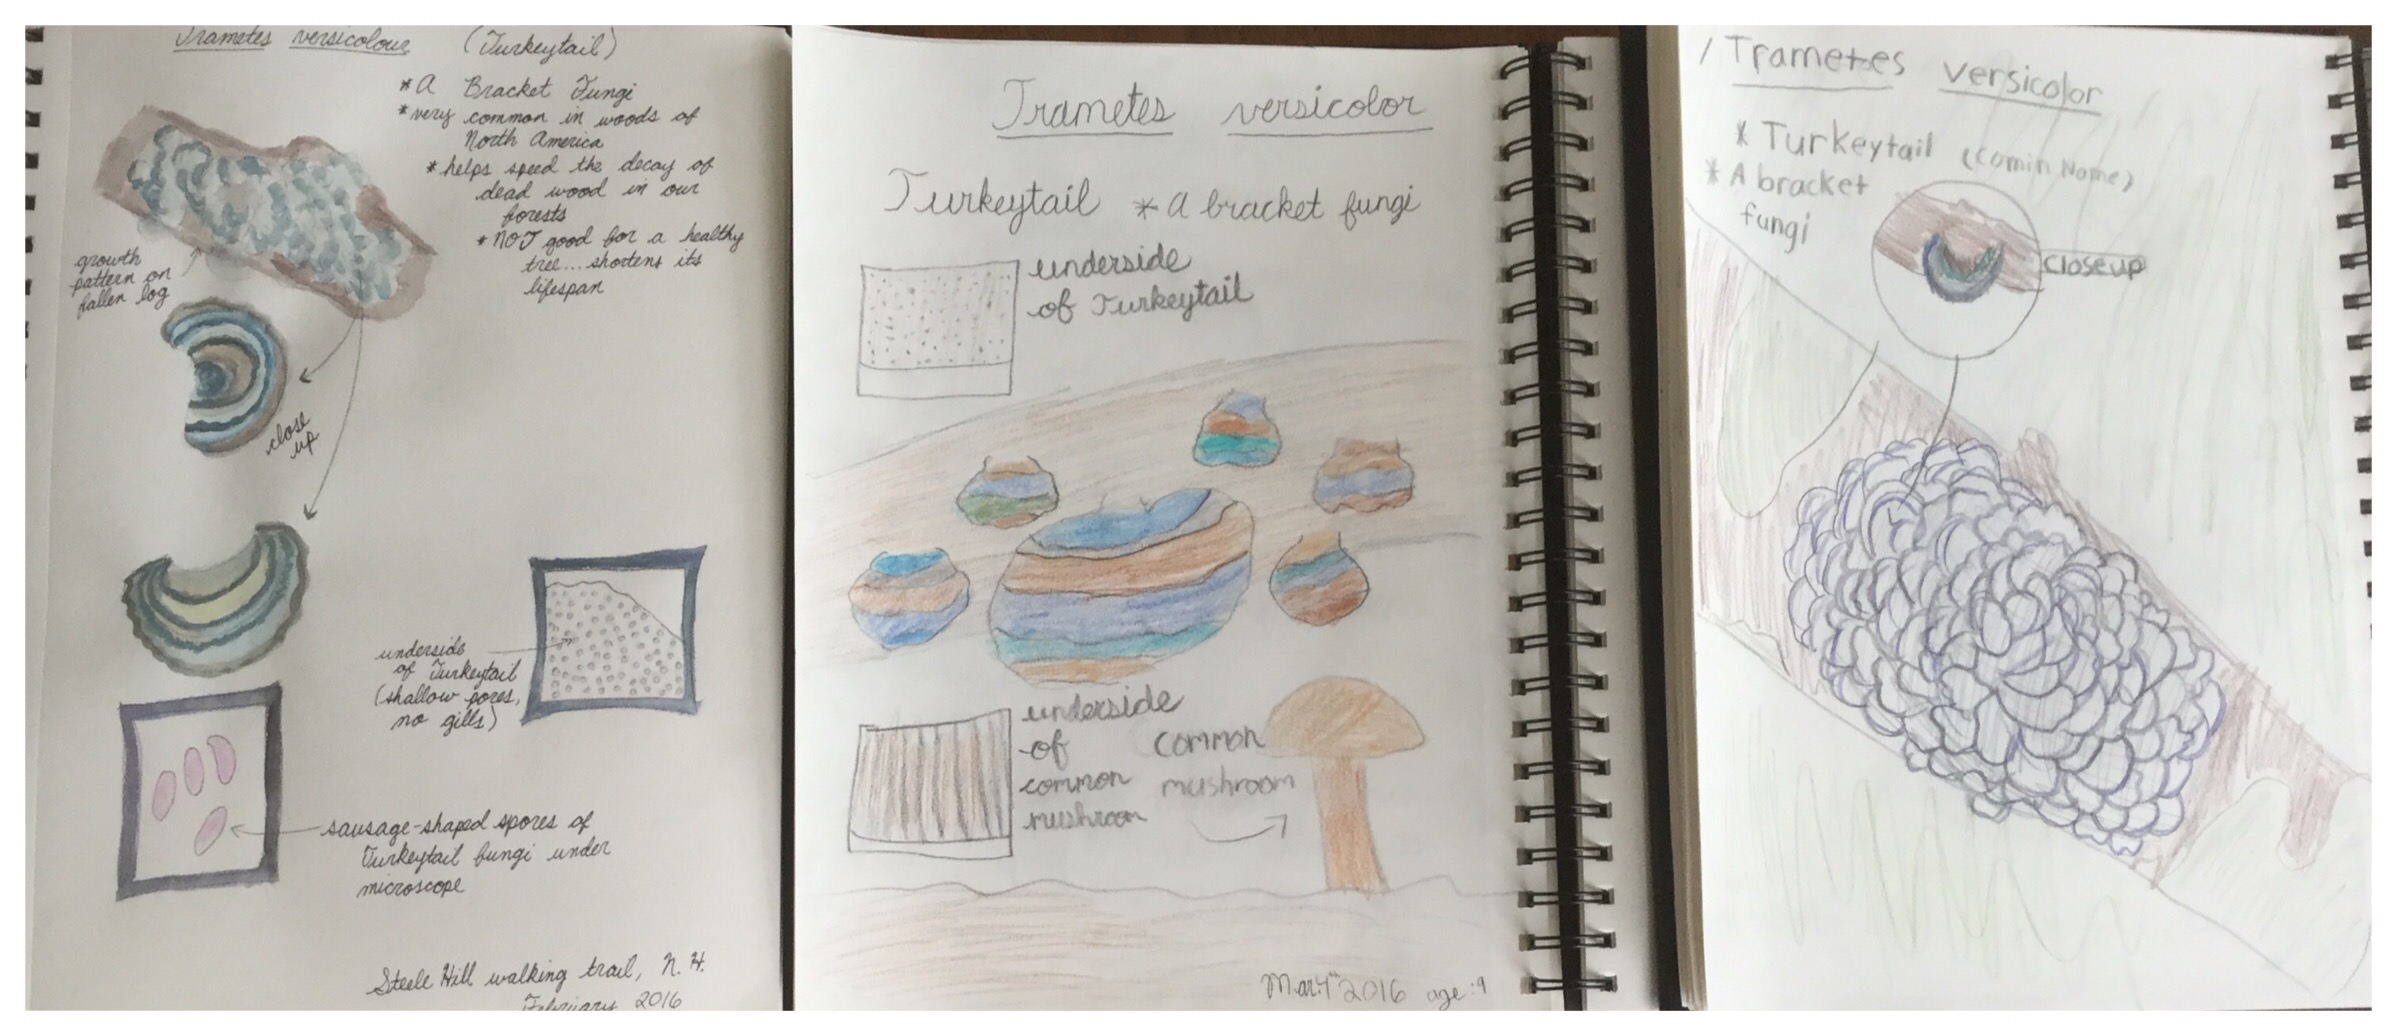 Trametes versicolour (Turkeytail)
* A Bracket Fungi
* very common in woods of
North America
* helps speed the decay of
dead wood in our
forests
* NOT good for a healthy
tree.... shortens its
lifespan
growth
pattern on
fallen log
close
up
underside
of Turkeytail
(shallow pores,
no gills)
sausage-shaped spores of
Turkeytail fungi under
microscope
Steele Hill walking trail, N. H.
February 2016
Trametes versicolor
Turkeytail * A bracket fungi
underside
of Turkeytail
underside
of
common
mushroom
common
mushroom
2016 age: 9
Trametes versicolor
* Turkeytail (comin Name)
* A bracket
fungi
closeup